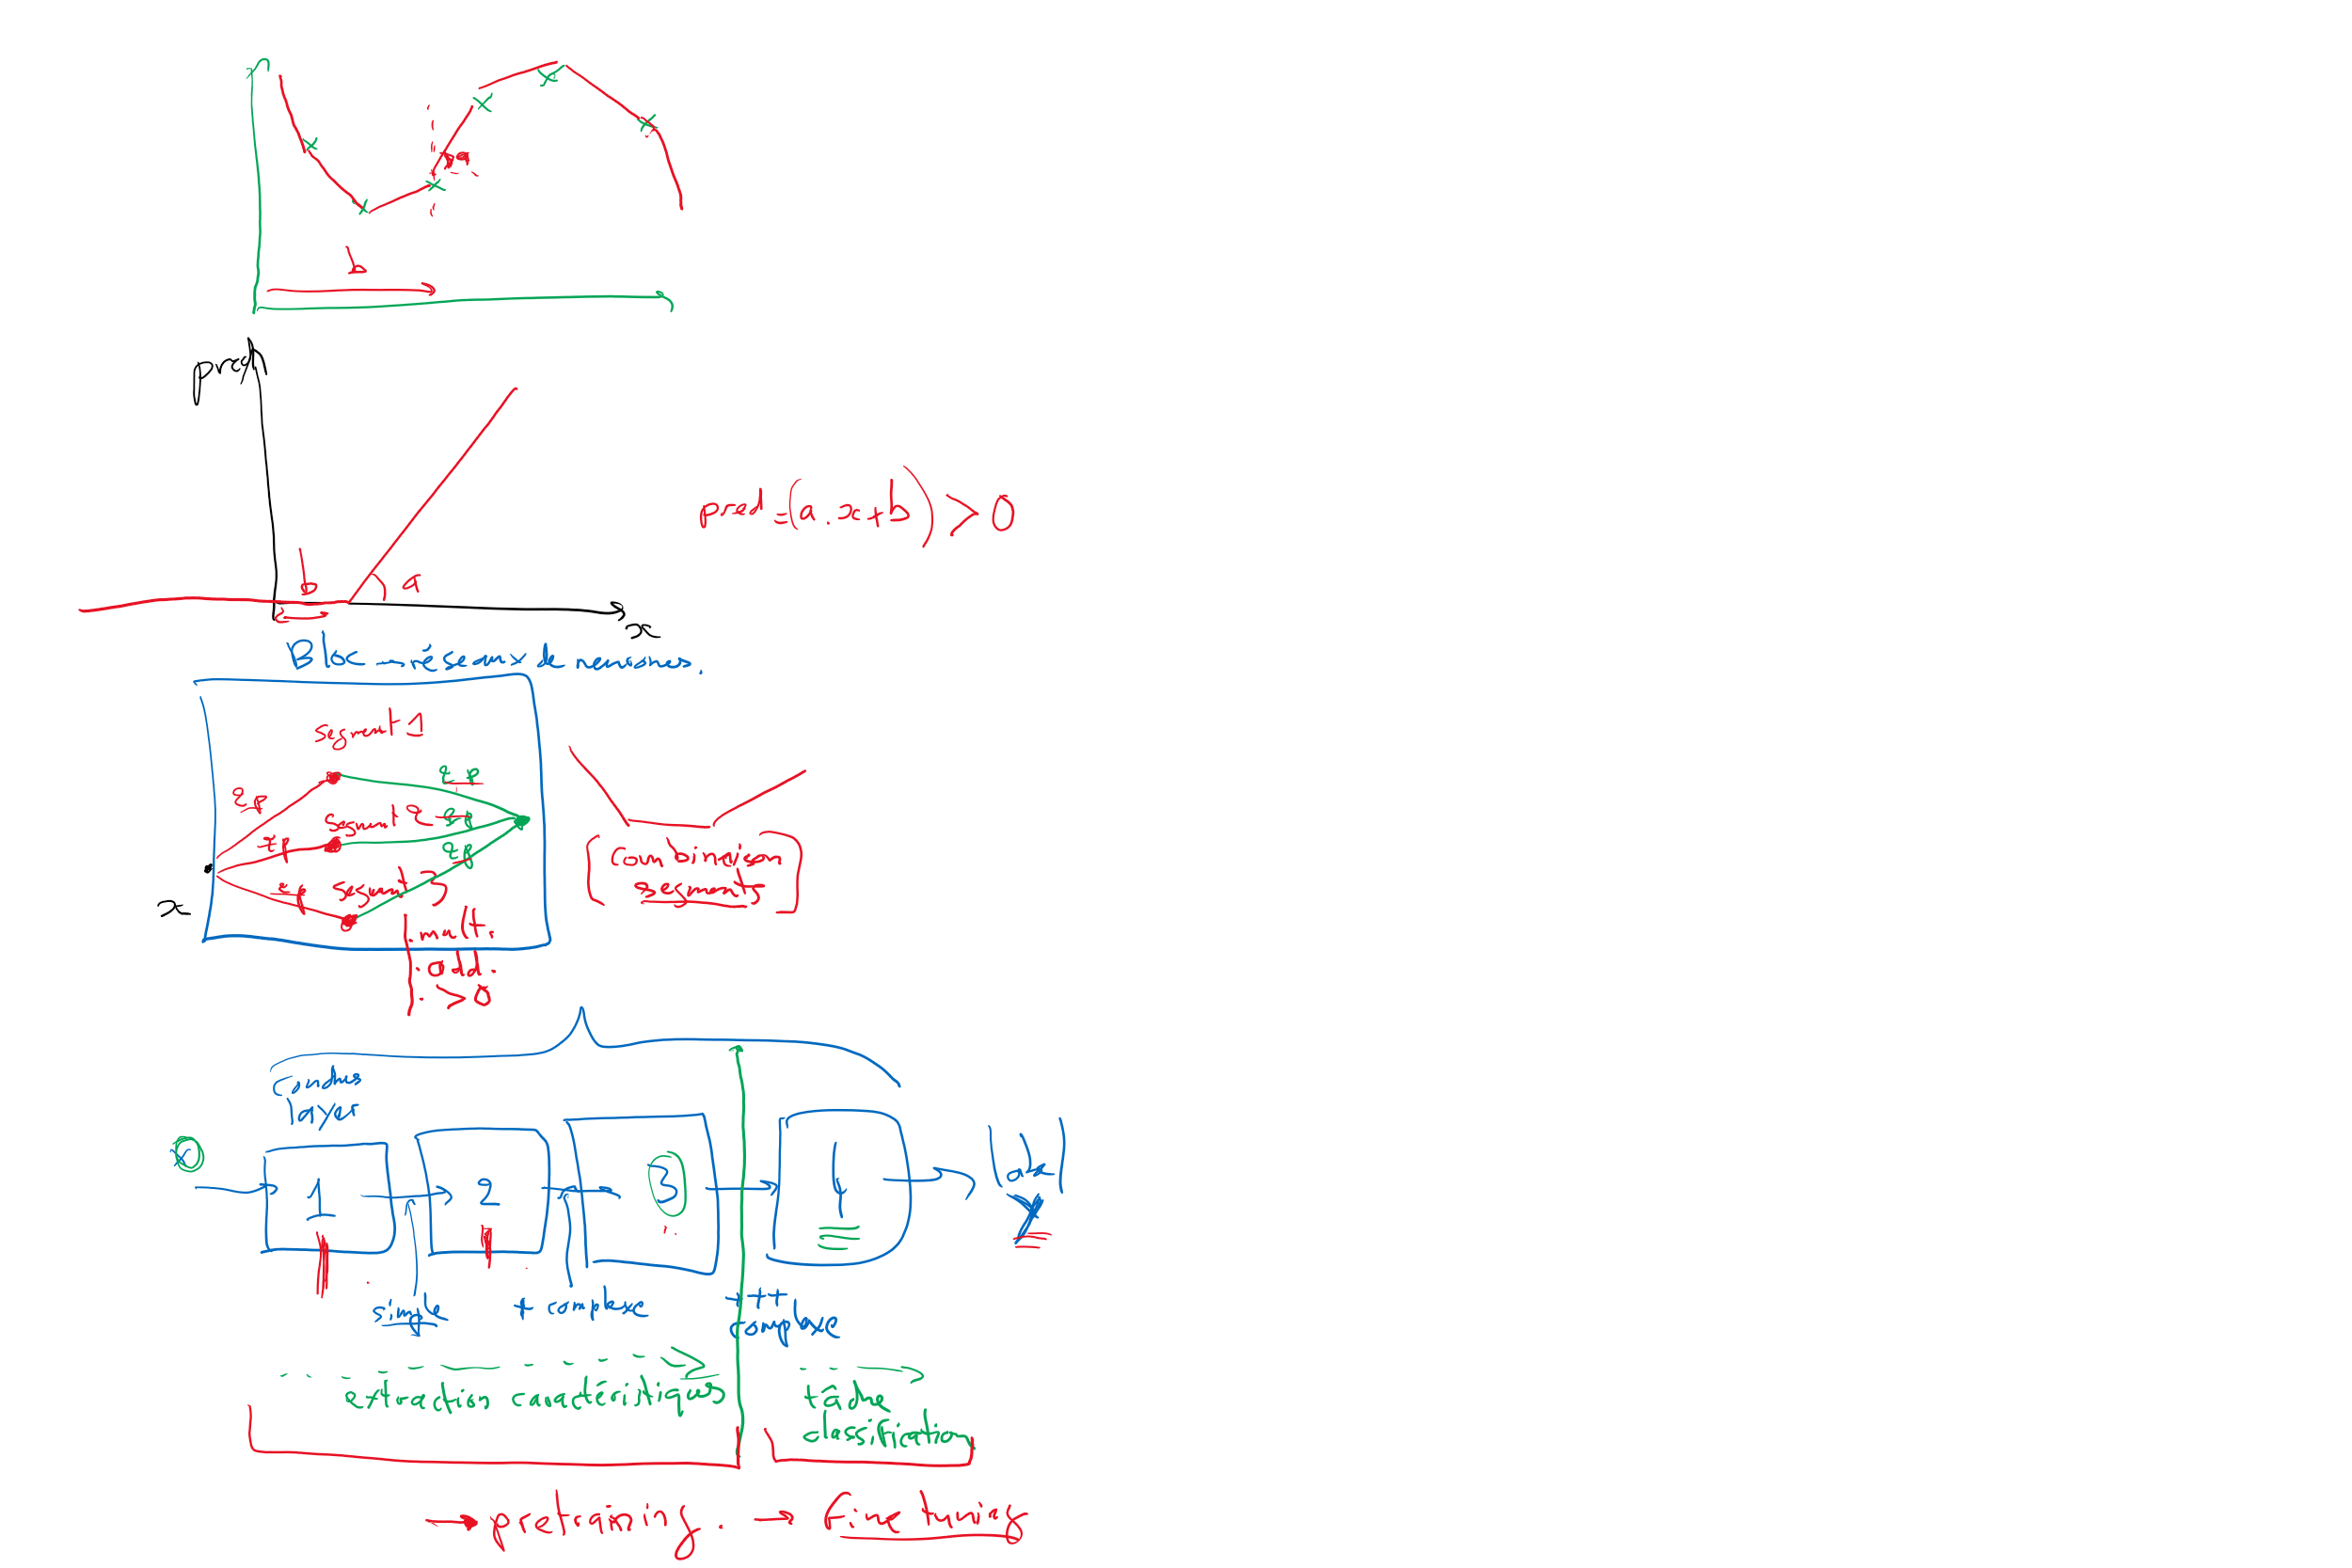 pa
b
pred
b
a
x
pred = (a.x+b) > 0
Bloc → réseaux de neurones.
segment 1
2p
2p
segment 2
2p
2p
2p
2p
segment 3
x
(combinaison
segments)
. mult.
. add.
. > 0
couches
layer
x
1
2
3
simple
+ complexe
+++
complexe
extraction caractéristiques
tâche
classification
→ pretraining. → Fine tuning